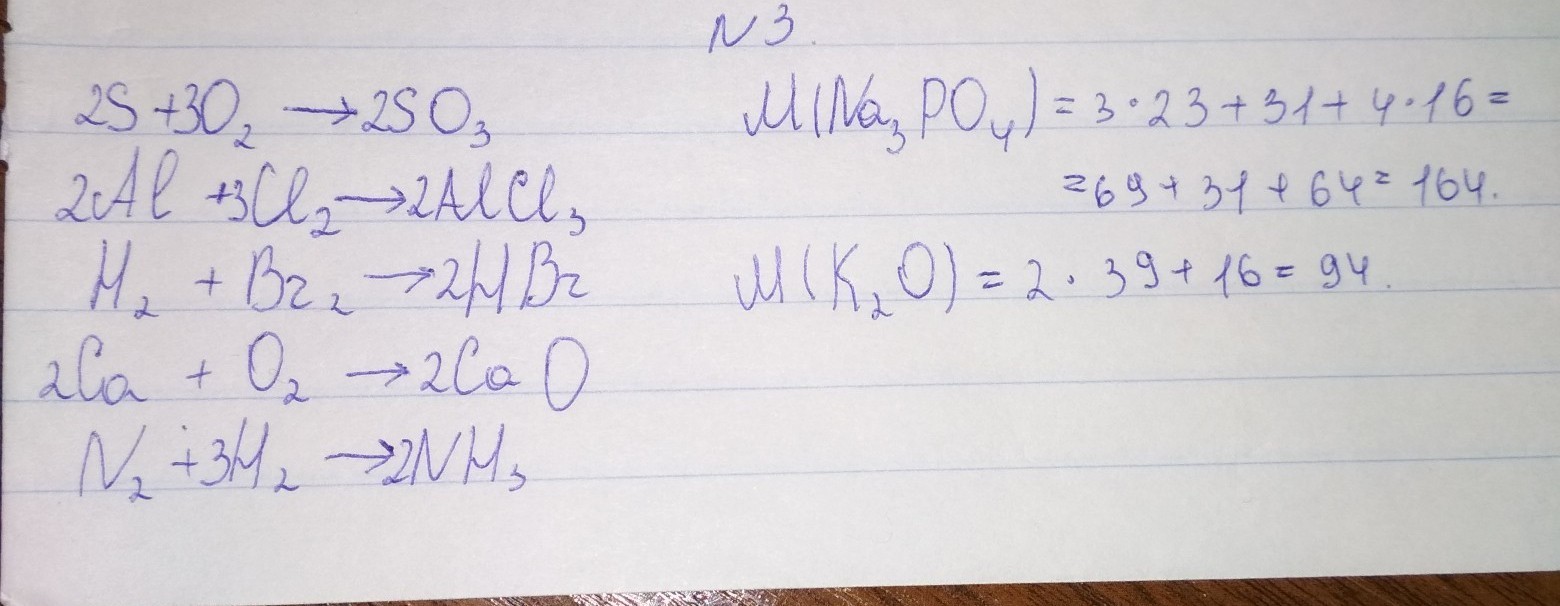 N3.
2S+3O₂ → 2SO₃
2Al +3Cl₂ → 2AlCl₃
H₂ + Br₂ → 2HBr
2Ca + O₂ → 2CaO
N₂ +3H₂ → 2NH₃
M(Na₃PO₄) = 3·23+31+4·16=
=69+31+64=164.
M(K₂O) = 2·39+16=94.